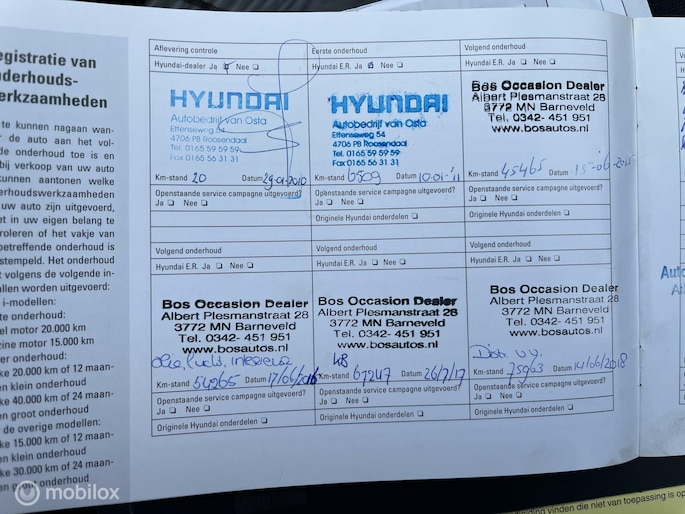 egistratie van
derhouds-
erkzaamheden
te kunnen nagaan wan-
r de auto aan het vol-
de onderhoud toe is en
bij verkoop van uw auto
kunnen aantonen welke
derhoudswerkzaamheden
uw auto zijn uitgevoerd,
et in uw eigen belang te
troleren of het vakje van
betreffende onderhoud is
stempeld. Het onderhoud
t volgens de volgende in-
allen worden uitgevoerd:
i-modellen:
te onderhoud:
el motor 20.000 km
zine motor 15.000 km
er onderhoud:
ke 20.000 km of 12 maan-
en klein onderhoud
ke 40.000 km of 24 maan-
en groot onderhoud
de overige modellen:
ke 15.000 km of 12 maan-
en klein onderhoud
ke 30.000 km of 24 maan-
en groot onderhoud
Aflevering controle
Hyundai-dealer Ja Nee
HYUNDAI
Autobedrijf van Osta
Ettenseweg 54
4706 PB Roosendaal
Tel. 0165 59 59 59
Fax 0165 56 31 31
Km-stand 20 Datum 29-01-2010
Openstaande service campagne uitgevoerd?
Ja Nee
Eerste onderhoud
Hyundai E.R. Ja Nee
HYUNDAI
Autobedrijf van Osta
Ettenseweg 54
4706 PB Roosendaal
Tel. 0165 59 59 59
Fax 0165 56 31 31
Km-stand 6509 Datum 10-01-'11
Openstaande service campagne uitgevoerd?
Ja Nee
Originele Hyundai onderdelen
Volgend onderhoud
Hyundai E.R. Ja Nee
Bos Occasion Dealer
Albert Plesmanstraat 28
3772 MN Barneveld
Tel. 0342- 451 951
www.bosautos.nl
Km-stand 45465 Datum 15-06-2015
Openstaande service campagne uitgevoerd?
Ja Nee
Originele Hyundai onderdelen
Volgend onderhoud
Hyundai E.R. Ja Nee
Bos Occasion Dealer
Albert Plesmanstraat 28
3772 MN Barneveld
Tel. 0342- 451 951
www.bosautos.nl
Km-stand 54265 Datum 17/06/2016
Openstaande service campagne uitgevoerd?
Ja Nee
Originele Hyundai onderdelen
Volgend onderhoud
Hyundai E.R. Ja Nee
Bos Occasion Dealer
Albert Plesmanstraat 28
3772 MN Barneveld
Tel. 0342- 451 951
www.bosautos.nl
Km-stand 67247 Datum 26/7/17
Openstaande service campagne uitgevoerd?
Ja Nee
Originele Hyundai onderdelen
Volgend onderhoud
Hyundai E.R. Ja Nee
Bos Occasion Dealer
Albert Plesmanstraat 28
3772 MN Barneveld
Tel. 0342- 451 951
www.bosautos.nl
Km-stand 75963 Datum 14/06/2018
Openstaande service campagne uitgevoerd?
Ja Nee
Originele Hyundai onderdelen
vinden die niet van toepassing is op
mobilox